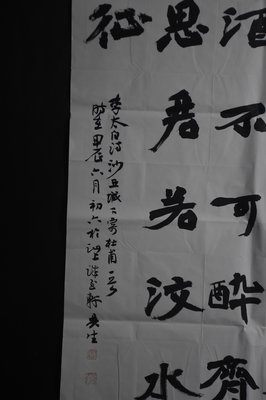 酒不可醉齊
思君若汶水
征
李太白诗沙丘城下寄杜甫一首
甲辰六月初六於